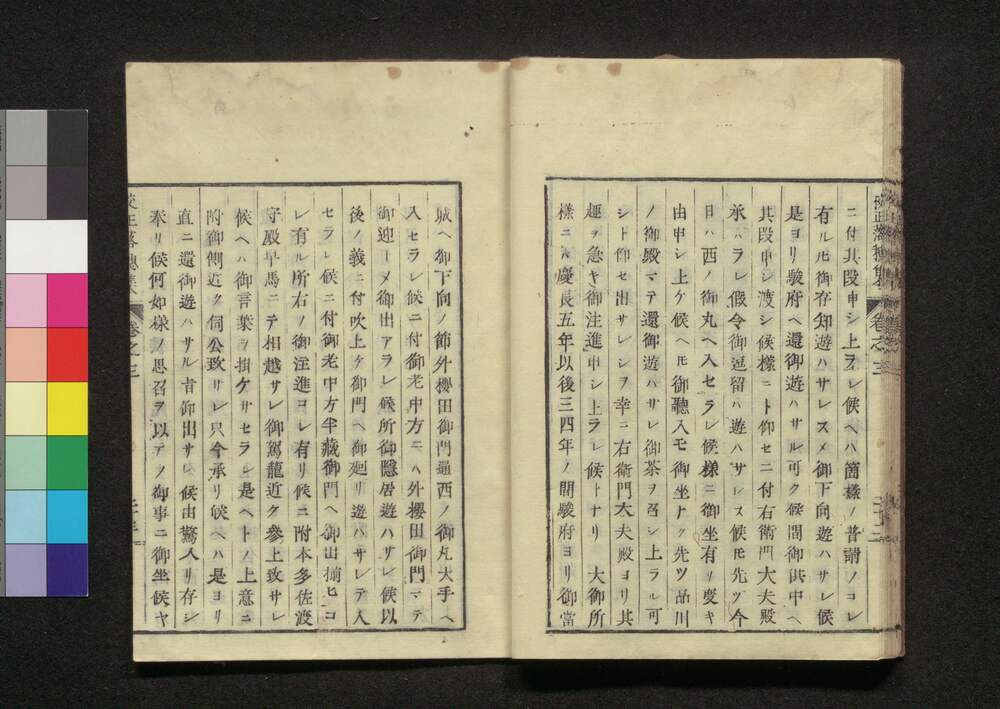 ニ付其段申シ上ラレ候ヘハ箇樣ノ普請ノコレ
有ル𪜈御存知遊ハサレスメ御下向遊ハサレ候
是ヨリ駿府ヘ還御遊ハサル可ク候間御供中ヘ
其段申シ渡シ候樣ニト仰セニ付右衛門大夫殿
承ハラレ假令御逗留ハ遊ハサレス候𪜈先ツ今
日ハ西ノ御丸ヘ入セラレ候樣ニ御坐有リ度キ
由申シ上ケ候ヘモ御聽入モ御坐ナク先ツ品川
ノ御殿マテ還御遊ハサレ御茶ヲ召シ上ラル可
シト仰セ出サレシヲ幸ニ右衛門大夫殿ヨリ其
趣ヲ急キ御注進申シ上ラレ候トナリ 大御所
樣ニハ慶長五年以後三四年ノ間駿府ヨリ御當
城ヘ御下向ノ節外櫻田御門通西ノ御丸大手ヘ
入セラレ候ニ付御老中方ニハ外櫻田御門マテ
御迎ーメ御出アラレ候所御隱居遊ハサレ候以
後ノ義ニ付吹上ケ御門ヘ御廻リ遊ハサレテ入
セラレ候ニ付御老中方半藏御門ヘ御出揃ヒコ
レ有ル所右ノ御注進コレ有リ候ニ附本多佐渡
守殿早馬ニテ相越サレ御駕籠近ク參上致サレ
候ヘハ御言葉ヲ掛ケサセラレ是ヘトノ上意ニ
附御側近ク伺公致サレ只今承リ候ヘハ是ヨリ
直ニ還御遊ハサル旨仰出サレ候由驚入リ存シ
奉リ候何如樣ノ思召ヲ以テノ御事ニ御坐候ヤ
校正落穗集 卷之三